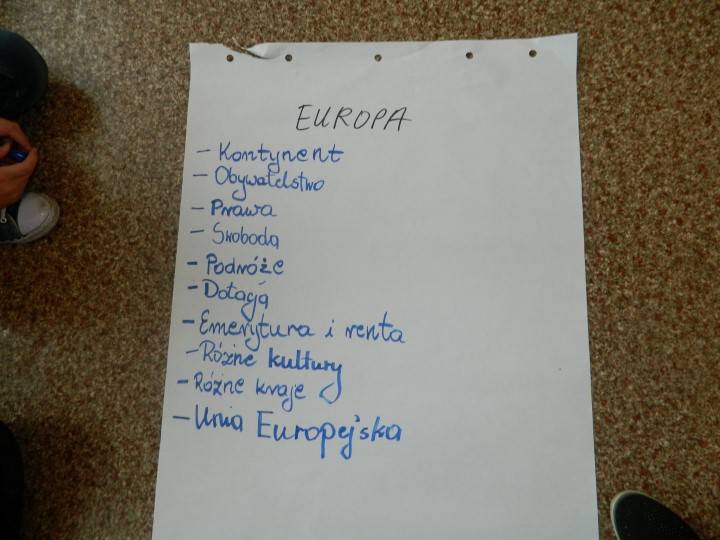 EUROPA
- Kontynent
- Obywatelstwo
- Prawa
- Swoboda
- Podróże
- Dotacja
- Emerytura i renta
- Różne kultury
- Różne kraje
- Unia Europejska